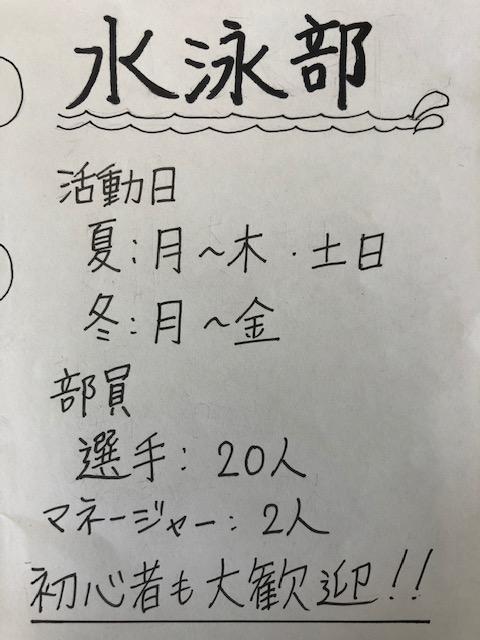 水泳部
活動日
夏:月～木・土日
冬:月～金
部員
選手:20人
マネージャー:2人
初心者も大歓迎!!